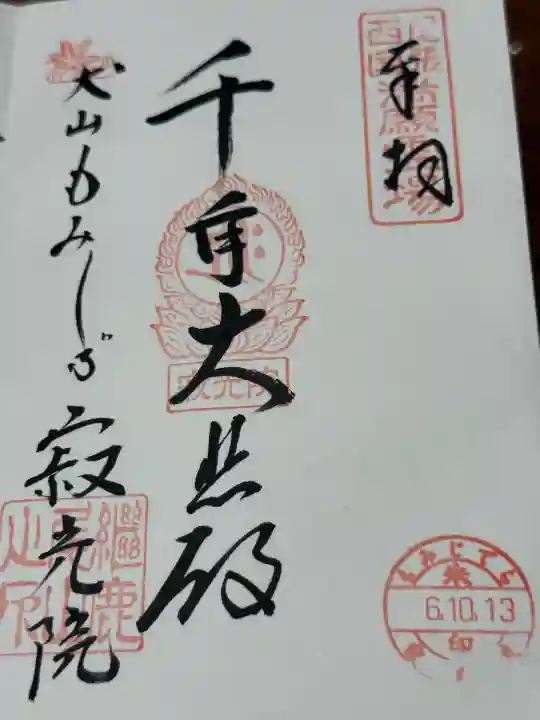 奉拝
千手大悲殿
寂光院
犬山もみじでら
寂光院
継鹿
6.10.13